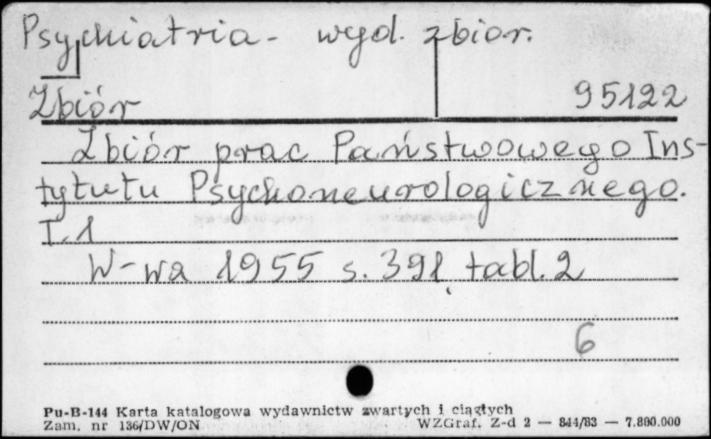 Psychiatria - wyd. zbior.
Zbiór 95122
Zbiór prac Państwowego Ins-
tytutu Psychoneurologicznego.
T.1
W-wa 1955 s. 391, tabl. 2
6
Pu-B-144 Karta katalogowa wydawnictw zwartych i ciągłych
Zam. nr 136/DW/ON WZGraf. Z-d 2 — 844/83 — 7.800.000